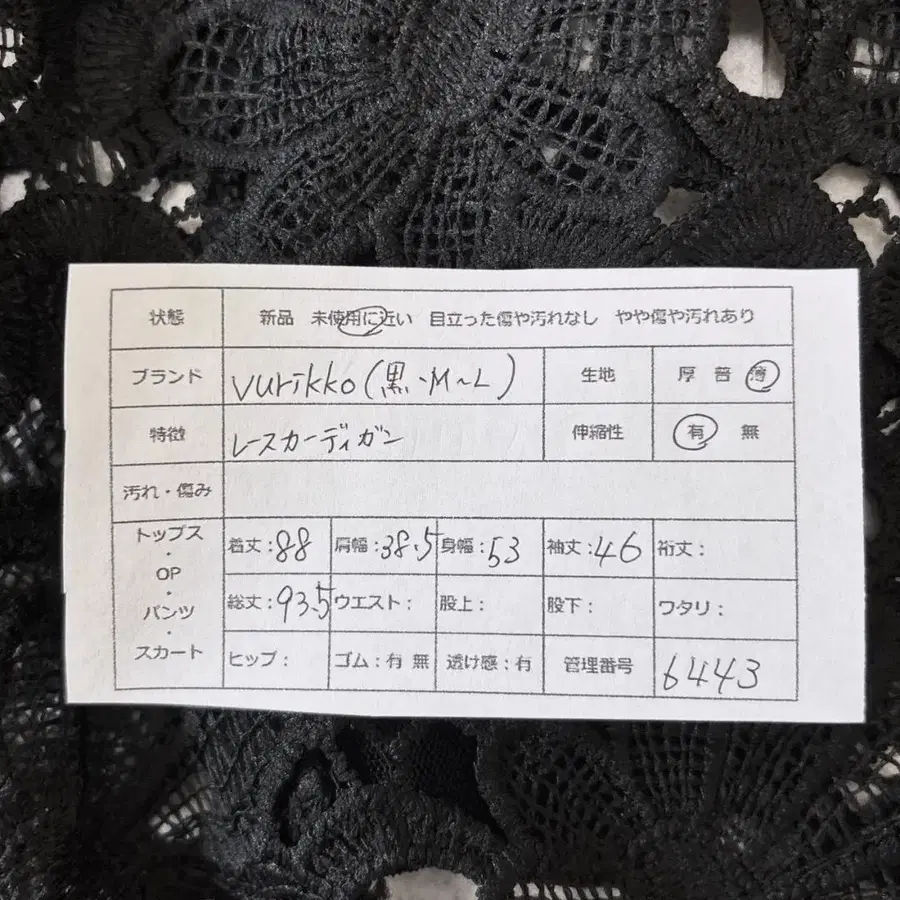 状態 新品 未使用に近い 目立った傷や汚れなし やや傷や汚れあり
ブランド vurikko(黒、M~L) 生地 厚 普 薄
特徴 レースカーディガン 伸縮性 有 無
汚れ・傷み
トップス・OP・パンツ・スカート
着丈:88 肩幅:38.5 身幅:53 袖丈:46 裄丈:
総丈:93.5 ウエスト: 股上: 股下: ワタリ:
ヒップ: ゴム:有 無 透け感:有 管理番号 6443